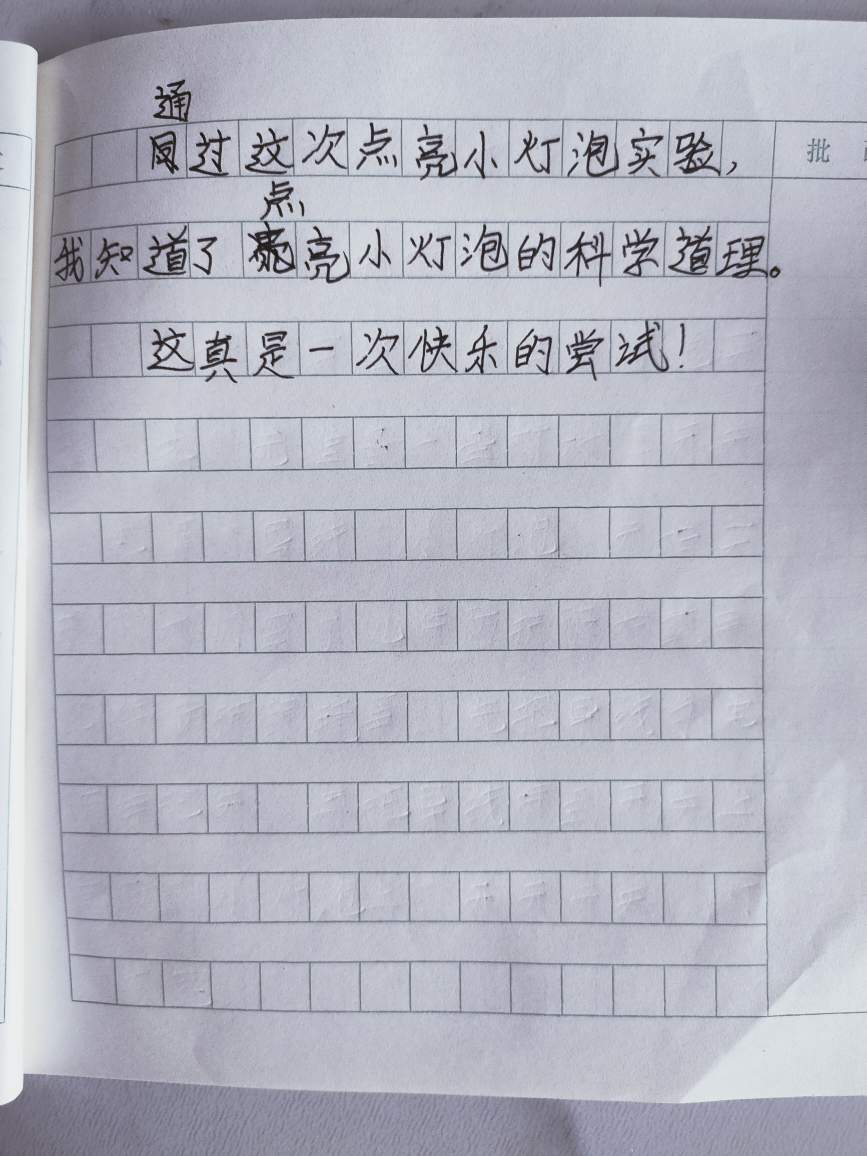 通
同过这次点亮小灯泡实验,
点
我知道了亮亮小灯泡的科学道理。
这真是一次快乐的尝试!
批